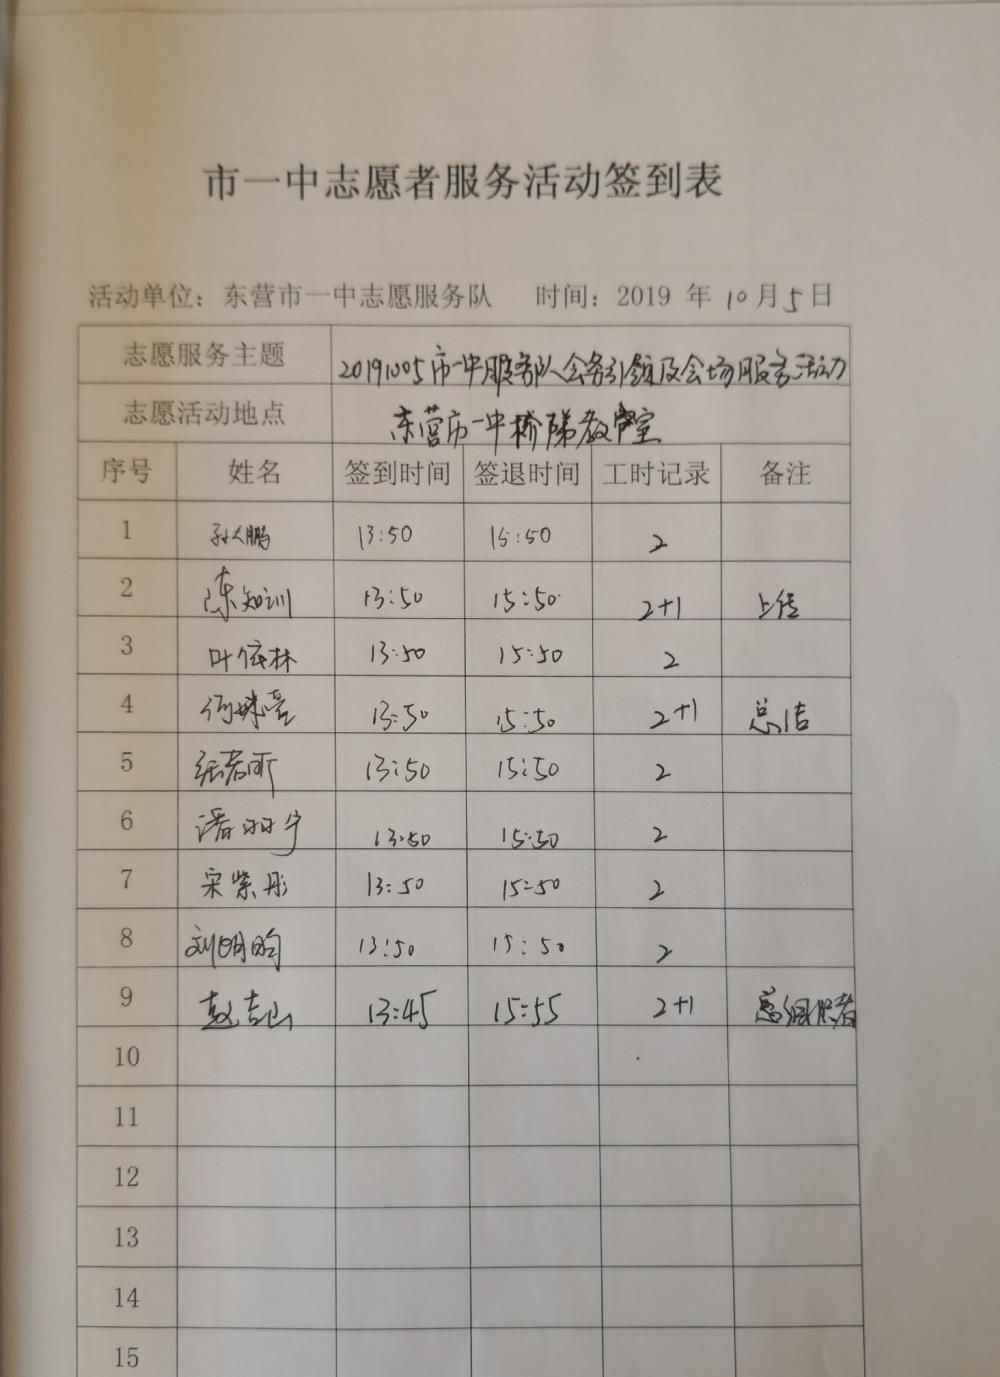 市一中志愿者服务活动签到表
活动单位：东营市一中志愿服务队 时间：2019 年 10月5日
志愿服务主题 20191005市一中服务队会务引领及会场服务活动
志愿活动地点 东营市一中阶梯教室
序号 姓名 签到时间 签退时间 工时记录 备注
1 孙大鹏 13:50 15:50 2
2 陈知训 13:50 15:50 2+1 上传
3 叶依林 13:50 15:50 2
4 13:50 15:50 2+1 总结
5 13:50 15:50 2
6 潘羽宁 13:50 15:50 2
7 宋紫彤 13:50 15:50 2
8 刘明昀 13:50 15:50 2
9 赵吉山 13:45 15:55 2+1
10
11
12
13
14
15